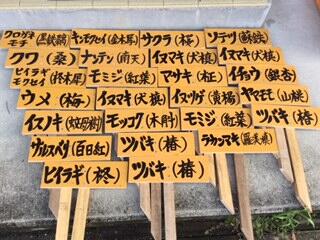 クロガネ
モチ(黒鉄黐)
キンモクセイ(金木犀)
サクラ(桜)
ソテツ(蘇鉄)
クワ(桑)
ナンテン(南天)
イヌマキ(犬槇)
イヌマキ(犬槇)
ヒイラギ
モクセイ(柊木犀)
モミジ(紅葉)
マサキ(柾)
イチョウ(銀杏)
ウメ(梅)
イヌマキ(犬槇)
イヌツゲ(黄楊)
ヤマモモ(山桃)
イスノキ(蚊母樹)
モッコク(木斛)
モミジ(紅葉)
ツバキ(椿)
サルスベリ(百日紅)
ツバキ(椿)
ラカンマキ(羅漢槇)
ヒイラギ(柊)
ツバキ(椿)